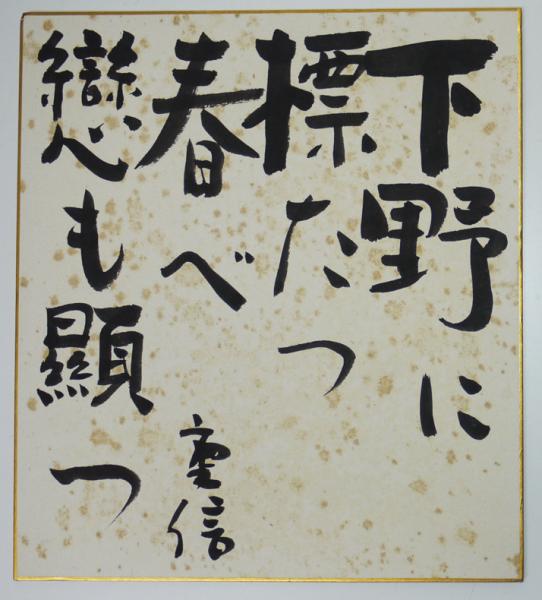 下野に
標たつ
春べ
戀も顯つ
重信